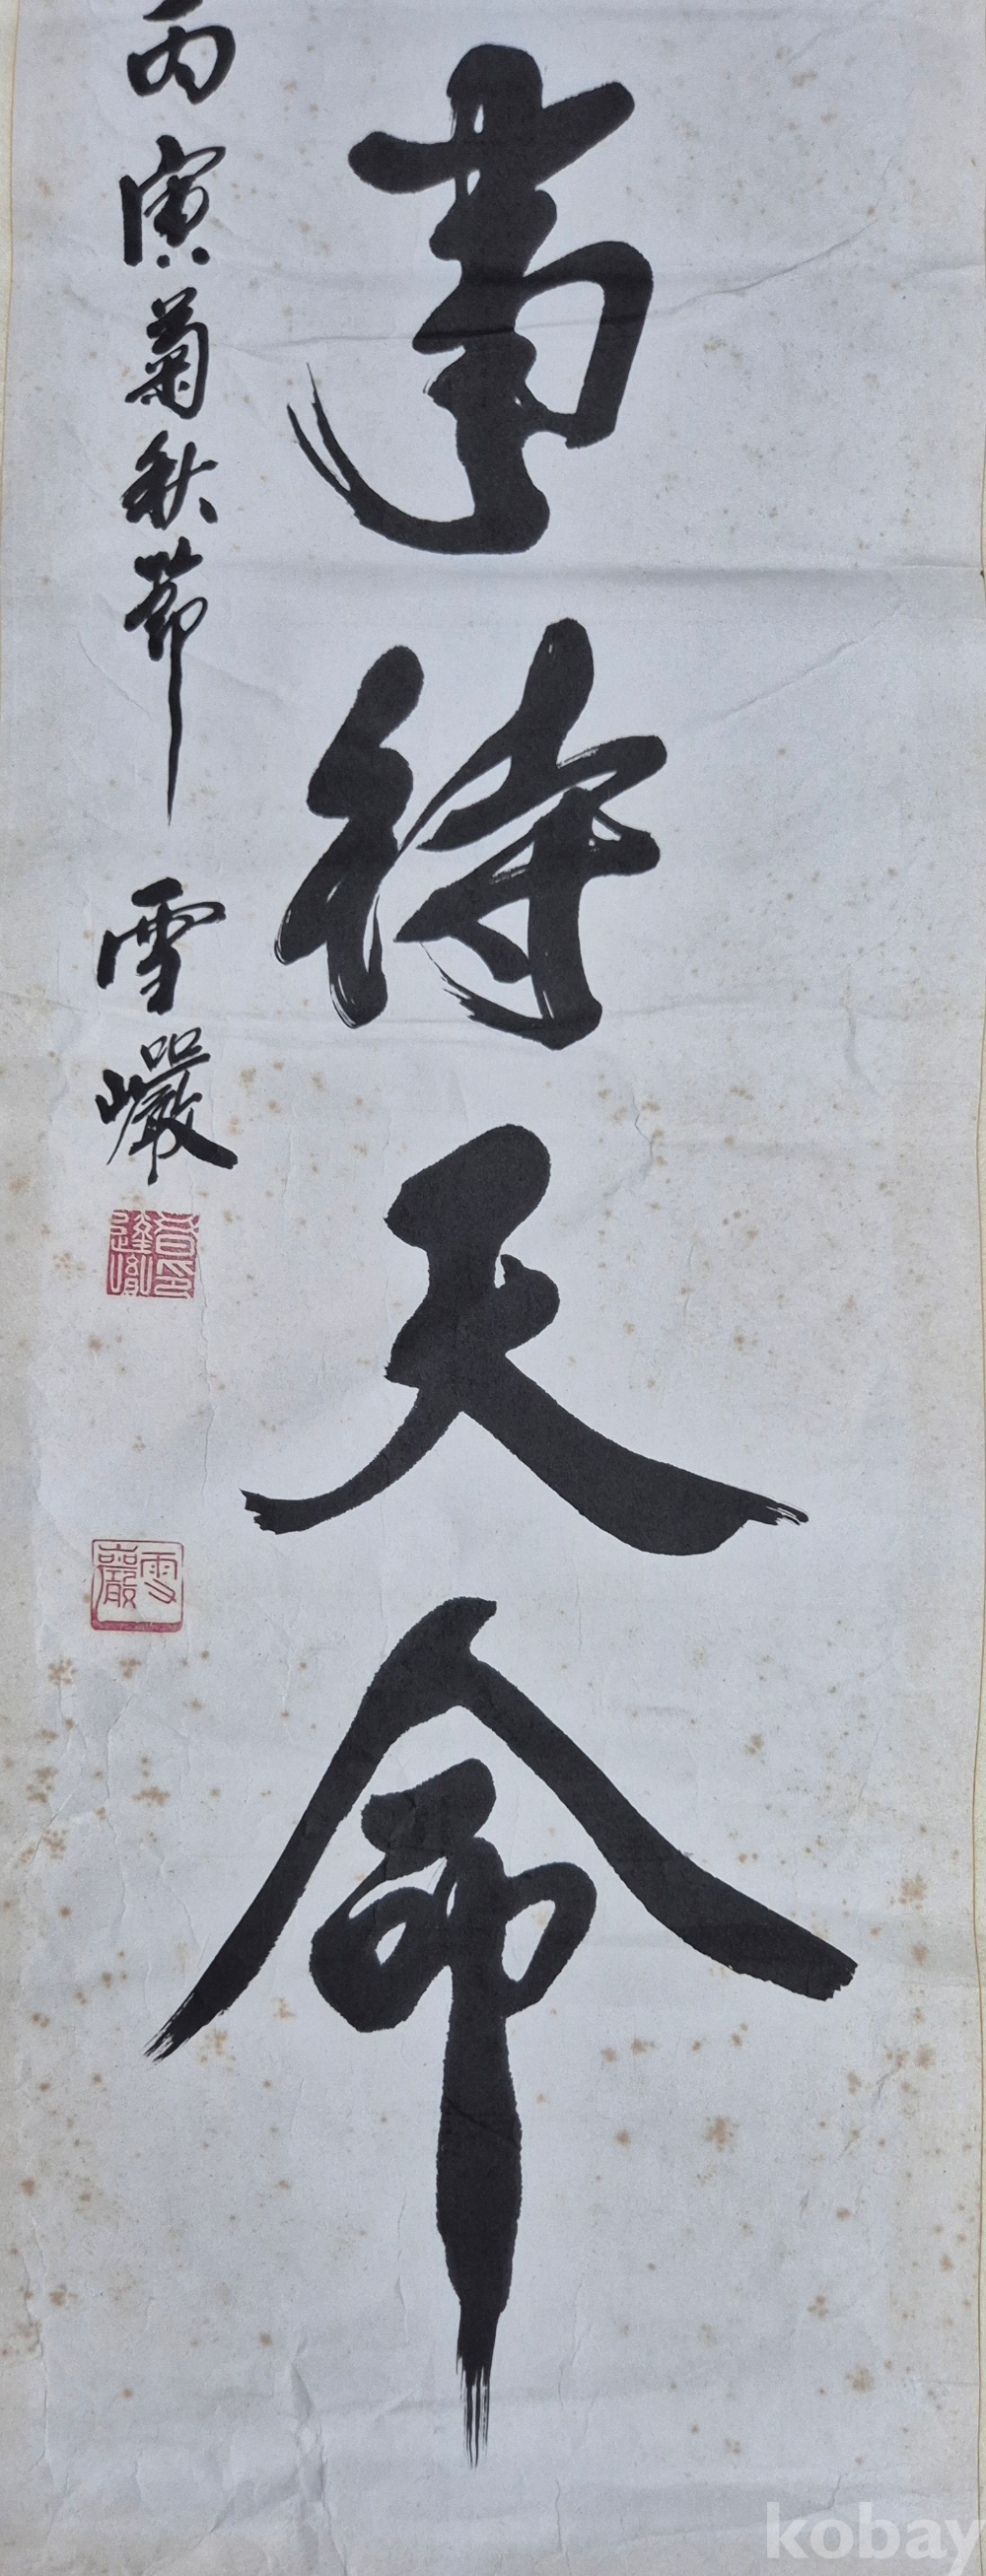 事待天命
丙寅菊秋節 雪巖
雪巖
kobay